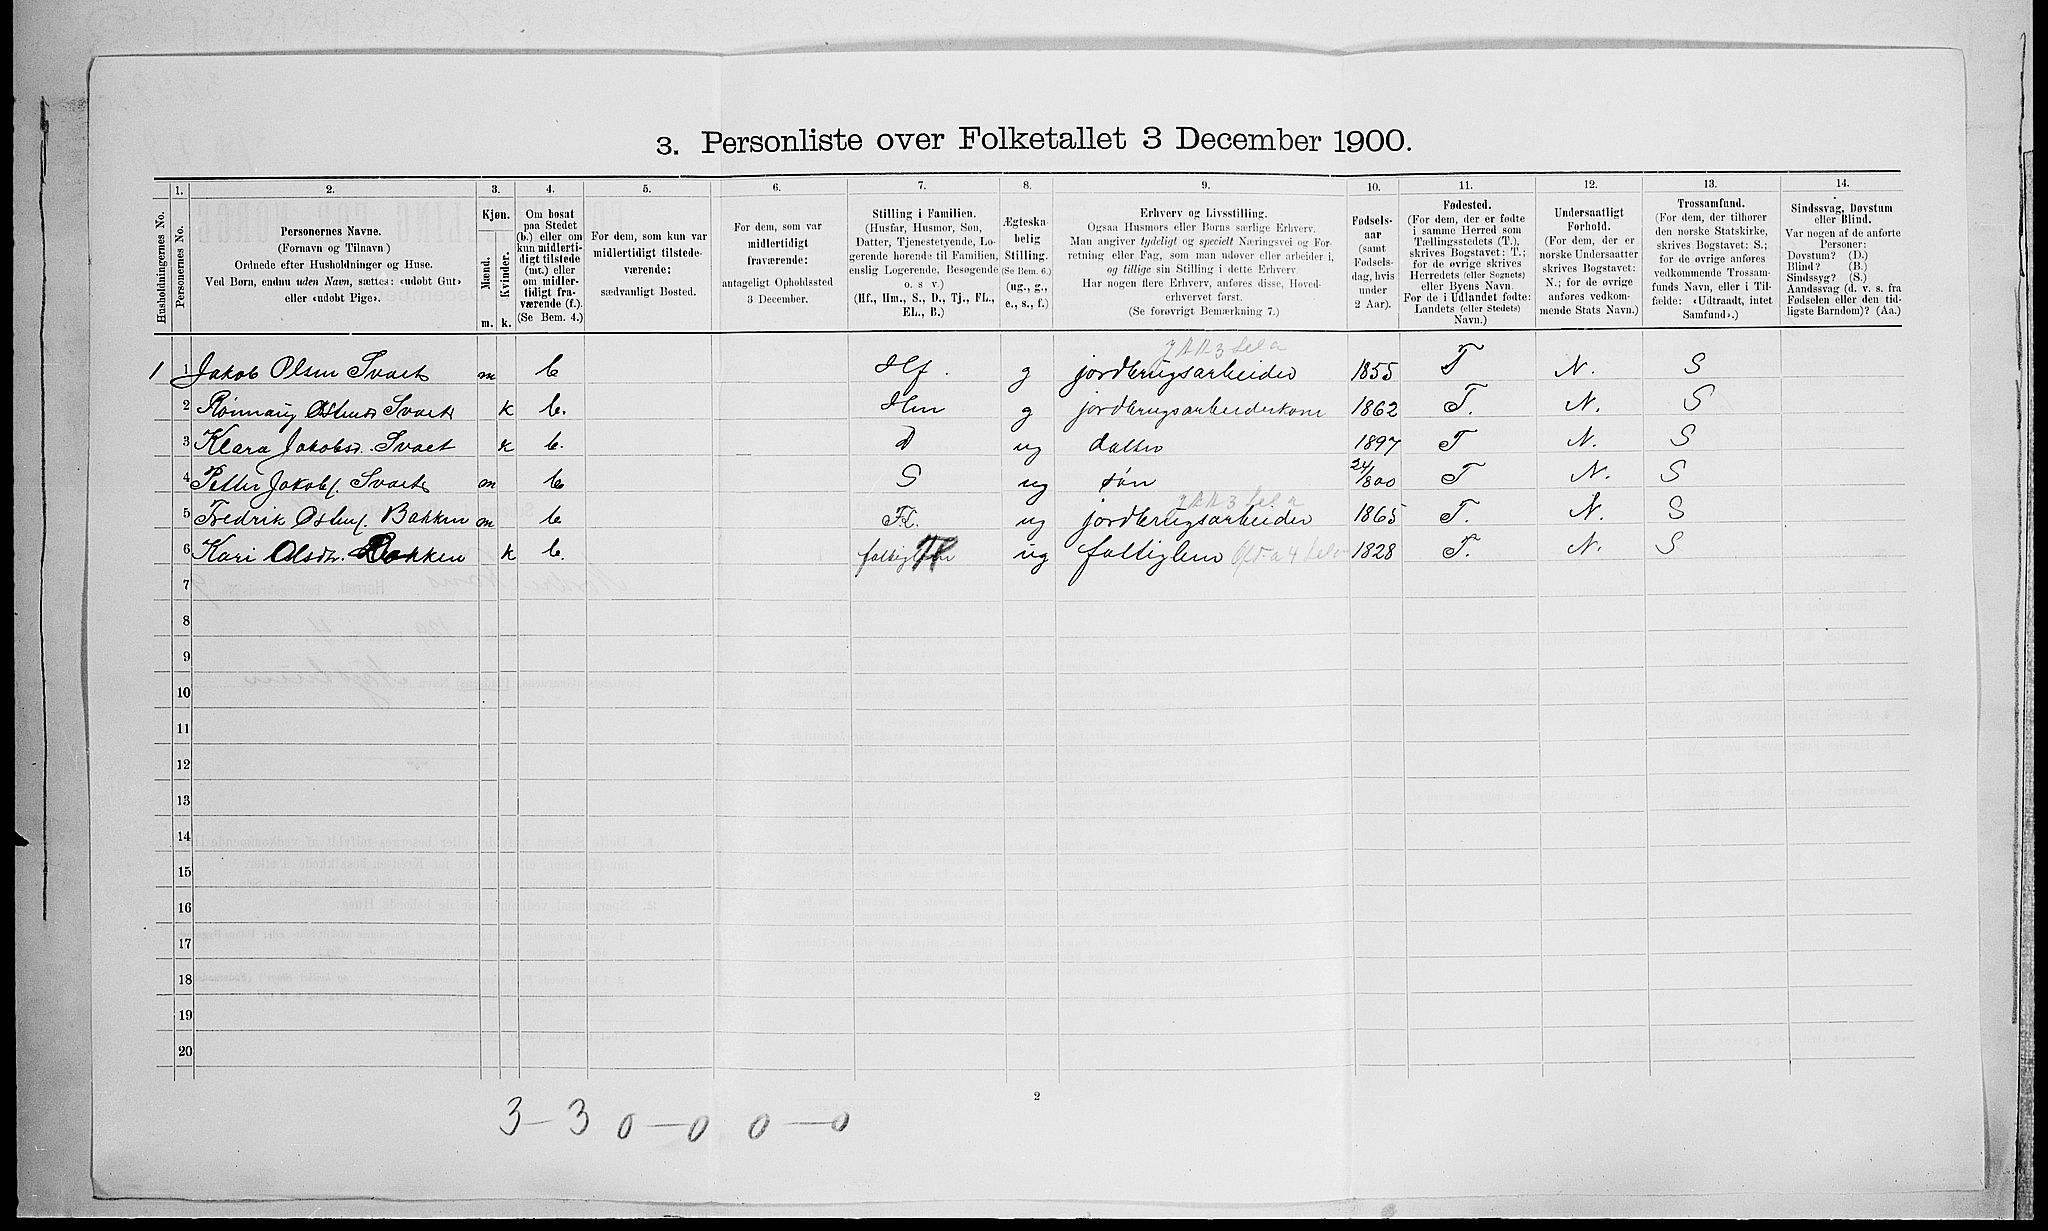 3. Personliste over Folketallet 3 December 1900.
1. 2. 3. 4. 5. 6. 7. 8. 9. 10. 11. 12. 13. 14.
Husholdningernes No.
Personernes No.
Personernes Navne.
(Fornavn og Tilnavn)
Ordnede efter Husholdninger og Huse.
Ved Børn, endnu uden Navn, sættes: «udøbt Gut»
eller «udøbt Pige».
Kjøn.
Mænd.
Kvinder.
m. k.
Om bosat
paa Stedet
(b.) eller om
kun midlerti-
digt tilstede
(mt.) eller
om midler-
tidigt fra-
værende (f.).
(Se Bem. 4.)
For dem, som kun var
midlertidigt tilstede-
værende:
sædvanligt Bosted.
For dem, som var
midlertidigt
fraværende:
antageligt Opholdssted
3 December.
Stilling i Familien.
(Husfar, Husmor, Søn,
Datter, Tjenestetyende, Lo-
gerende hørende til Familien,
enslig Logerende, Besøgende
o. s. v.)
(Hf., Hm., S., D., Tj., FL.,
EL., B.)
Ægteska-
belig
Stilling.
(Se Bem. 6.)
(ug., g.,
e., s., f.)
Erhverv og Livsstilling.
Ogsaa Husmors eller Børns særlige Erhverv.
Man angiver tydeligt og specielt Næringsvei og For-
retning eller Fag, som man udøver eller arbeider i,
og tillige sin Stilling i dette Erhverv.
Har nogen flere Erhverv, anføres disse, Hoved-
erhvervet først.
(Se forøvrigt Bemærkning 7.)
Fødsels-
aar
(samt
Fødsels-
dag, hvis
under
2 Aar).
Fødested.
(For dem, der er fødte
i samme Herred som
Tællingsstedets (T.),
skrives Bogstavet: T.;
for de øvrige skrives
Herredets (eller Sognets)
eller Byens Navn.
For de i Udlandet fødte:
Landets (eller Stedets)
Navn.)
Undersaatligt
Forhold.
(For dem, der er
norske Undersaatter
skrives Bogstavet:
N.; for de øvrige
anføres vedkom-
mende Stats Navn.)
Trossamfund.
(For dem, der tilhører
den norske Statskirke,
skrives Bogstavet: S.;
for de øvrige anføres
vedkommende Trossam-
funds Navn, eller i Til-
fælde: «Udtraadt, intet
Samfund».)
Sindssvag, Døvstum
eller Blind.
Var nogen af de anførte
Personer:
Døvstum? (D.)
Blind? (B.)
Sindssyg? (S.)
Aandssvag (d. v. s. fra
Fødselen eller den tid-
ligste Barndom)? (Aa.)
1 1 Jakob Olsen Svaet m b Hf. g jordbrugsarbeider 1855 T N. S
2 Rønnaug Ostensd. Svaet k b. Hm g jordbrugsarbeiderkone 1862 T. N. S
3 Klara Jakobsd. Svaet k b. D ug datter 1897 T N. S
4 Petter Jakobs. Svaet m b S ug søn 24/8 00 T N. S
5 Fredrik Ostens. Bakken m b FL. ug jordbrugsarbeider 1865 T. N. S
6 Kari Olsdtr. Bakken k b. ug fattiglem 1828 T. N. S
7
8
9
10
11
12
13
14
15
16
17
18
19
20
2
3 - 3 0 - 0 0 - 0